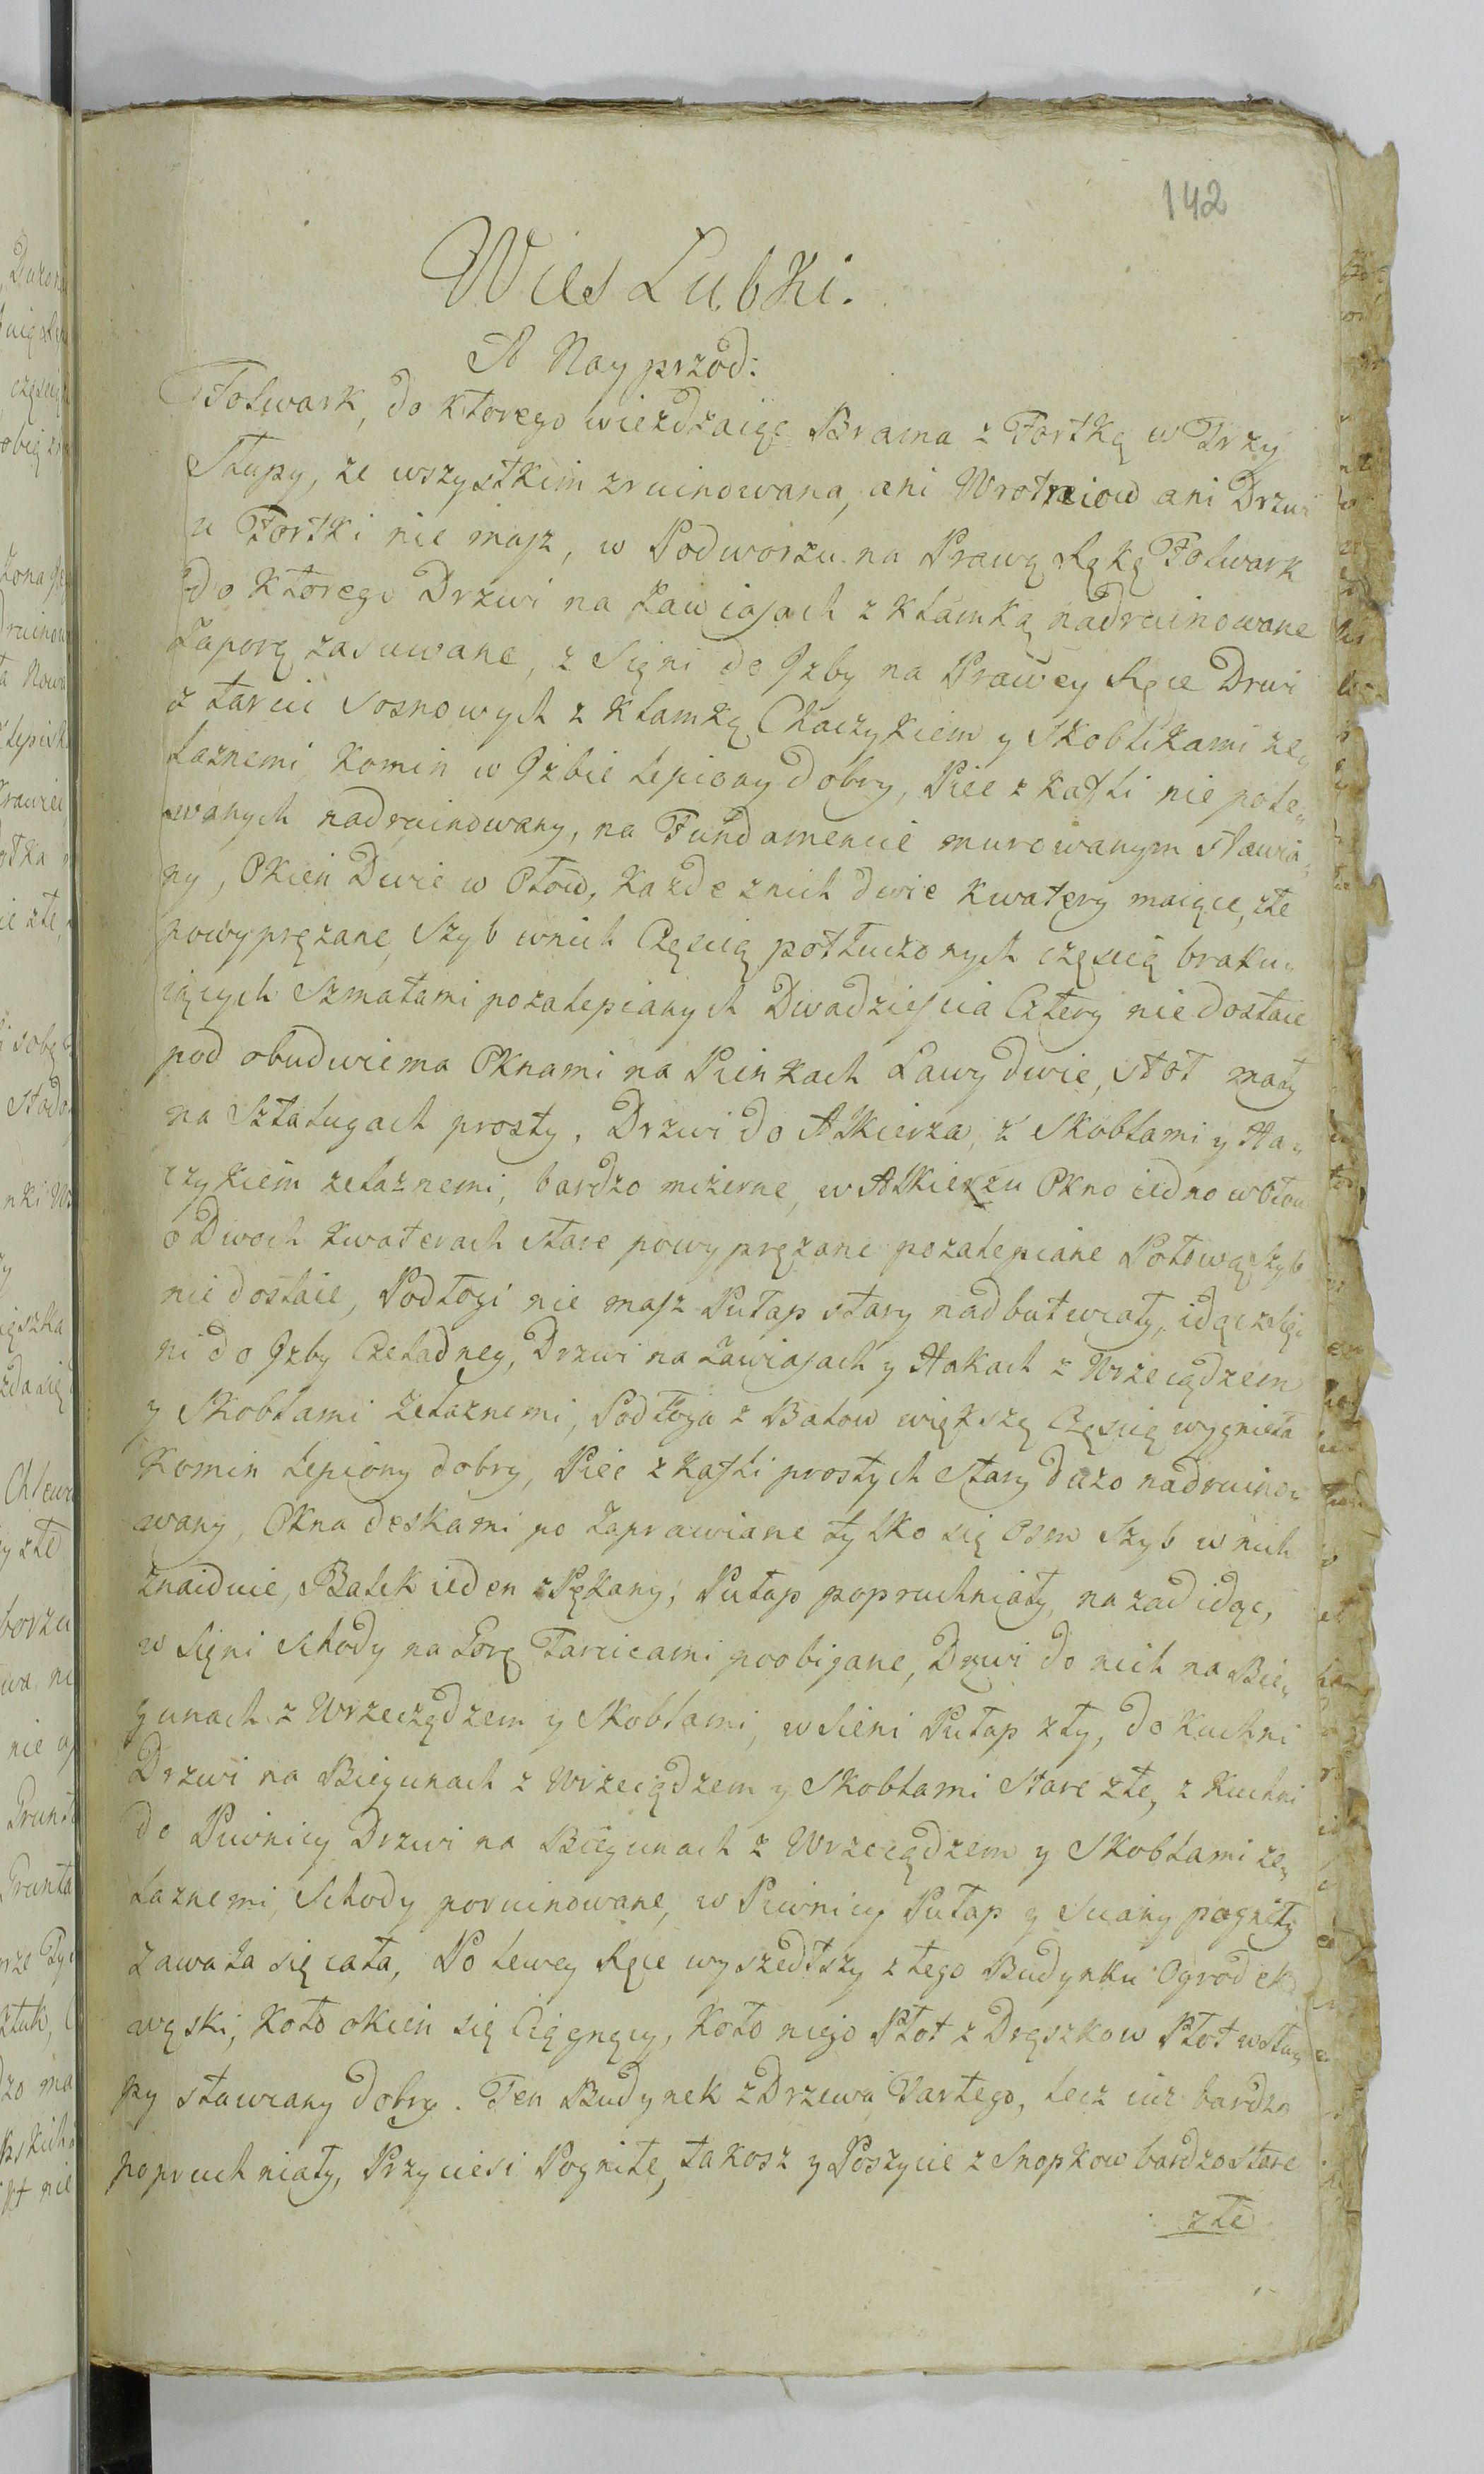 142
Wies Lubki.
A Nay przod:
Folwark, do ktorego wiezdzaiąc Brama z Fortką w Trzy
Słupy, ze wszystkim zruinowana, ani Wrotniow ani Drzwi
u Fortki nie masz, w Podworzu na Prawą Rękę Folwark
do ktorego Drzwi na Zawiasach z Klamką nadruinowane
Zaporą zasuwane, z Sięni do Izby na Prawey Ręce Drwi
z tarcic Sosnowych z Klamką Chaczykiem y Skoblikami że„
laznemi, Komin w Izbie lepiony dobry, Piec z kafli nie pole„
wanych nadruinowany, na Fundamencie murowanym stawia„
ny, Okien Dwie w Ołow, każde znich dwie kwatery maiące, złe
powyprężane, Szyb wnich Częscią potłuczonych częscią braku„
iących Szmatami pozalepianych Dwadziescia Cztery niedostaie
pod obudwiema Oknami na Pienkach Ławy dwie, Stoł mały
na Sztalugach prosty, Drzwi do Alkierza, z Skoblami y Ha„
czykiem żelaznemi, bardzo mizerne, w Alkierzu Okno iedno w Ołow
o Dwoch kwaterach stare powyprężane pozalepiane Połową szyb
nie dostaie, Podłogi nie masz Pułap stary nadbutwiały, idąc z Się
ni do Izby Czeladney, Drzwi na Zawiasach y Hakach z Wrzeciądzem
y Skoblami żelaznemi, Podłoga z Balow większą Częscią wygniła
Komin lepiony dobry, Piec z kafli prostych stary duzo nadruino„
wany, Okna deskami po Zaprawiane tylko się Osm Szyb w nich
znaiduie, Balek ieden z Pękany, Pułap popruchniały, nazad idąc,
w Sięni Schody na Gorę Tarcicami poobijane, Drzwi do nich na Bie„
gunach z Wrzeciądzem y Skoblami, w Sieni Pułap zły, do Kuchni
Drzwi na Biegunach z Wrzeciądzem y Skoblami Stare złe, z Kuchni
do Piwnicy Drzwi na Biegunach z Wrzeciądzem y Skoblami że„
laznemi, Schody poruinowane, w Piwnicy Pułap y Sciany pogniły
zawala się cała, Po lewey Ręce wyszedłszy z tego Budynku Ogrodek
wąski, koło okien się Ciągnący, koło niego Płot z Drąszkow Płot w Słu„
py stawiany dobry. Ten Budynek z Drzewa Tartego, lecz iuz bardzo
popruchniały, Przyciesi Pogniłe, takosz y Poszycie z Snopkow bardzo Stare
złe